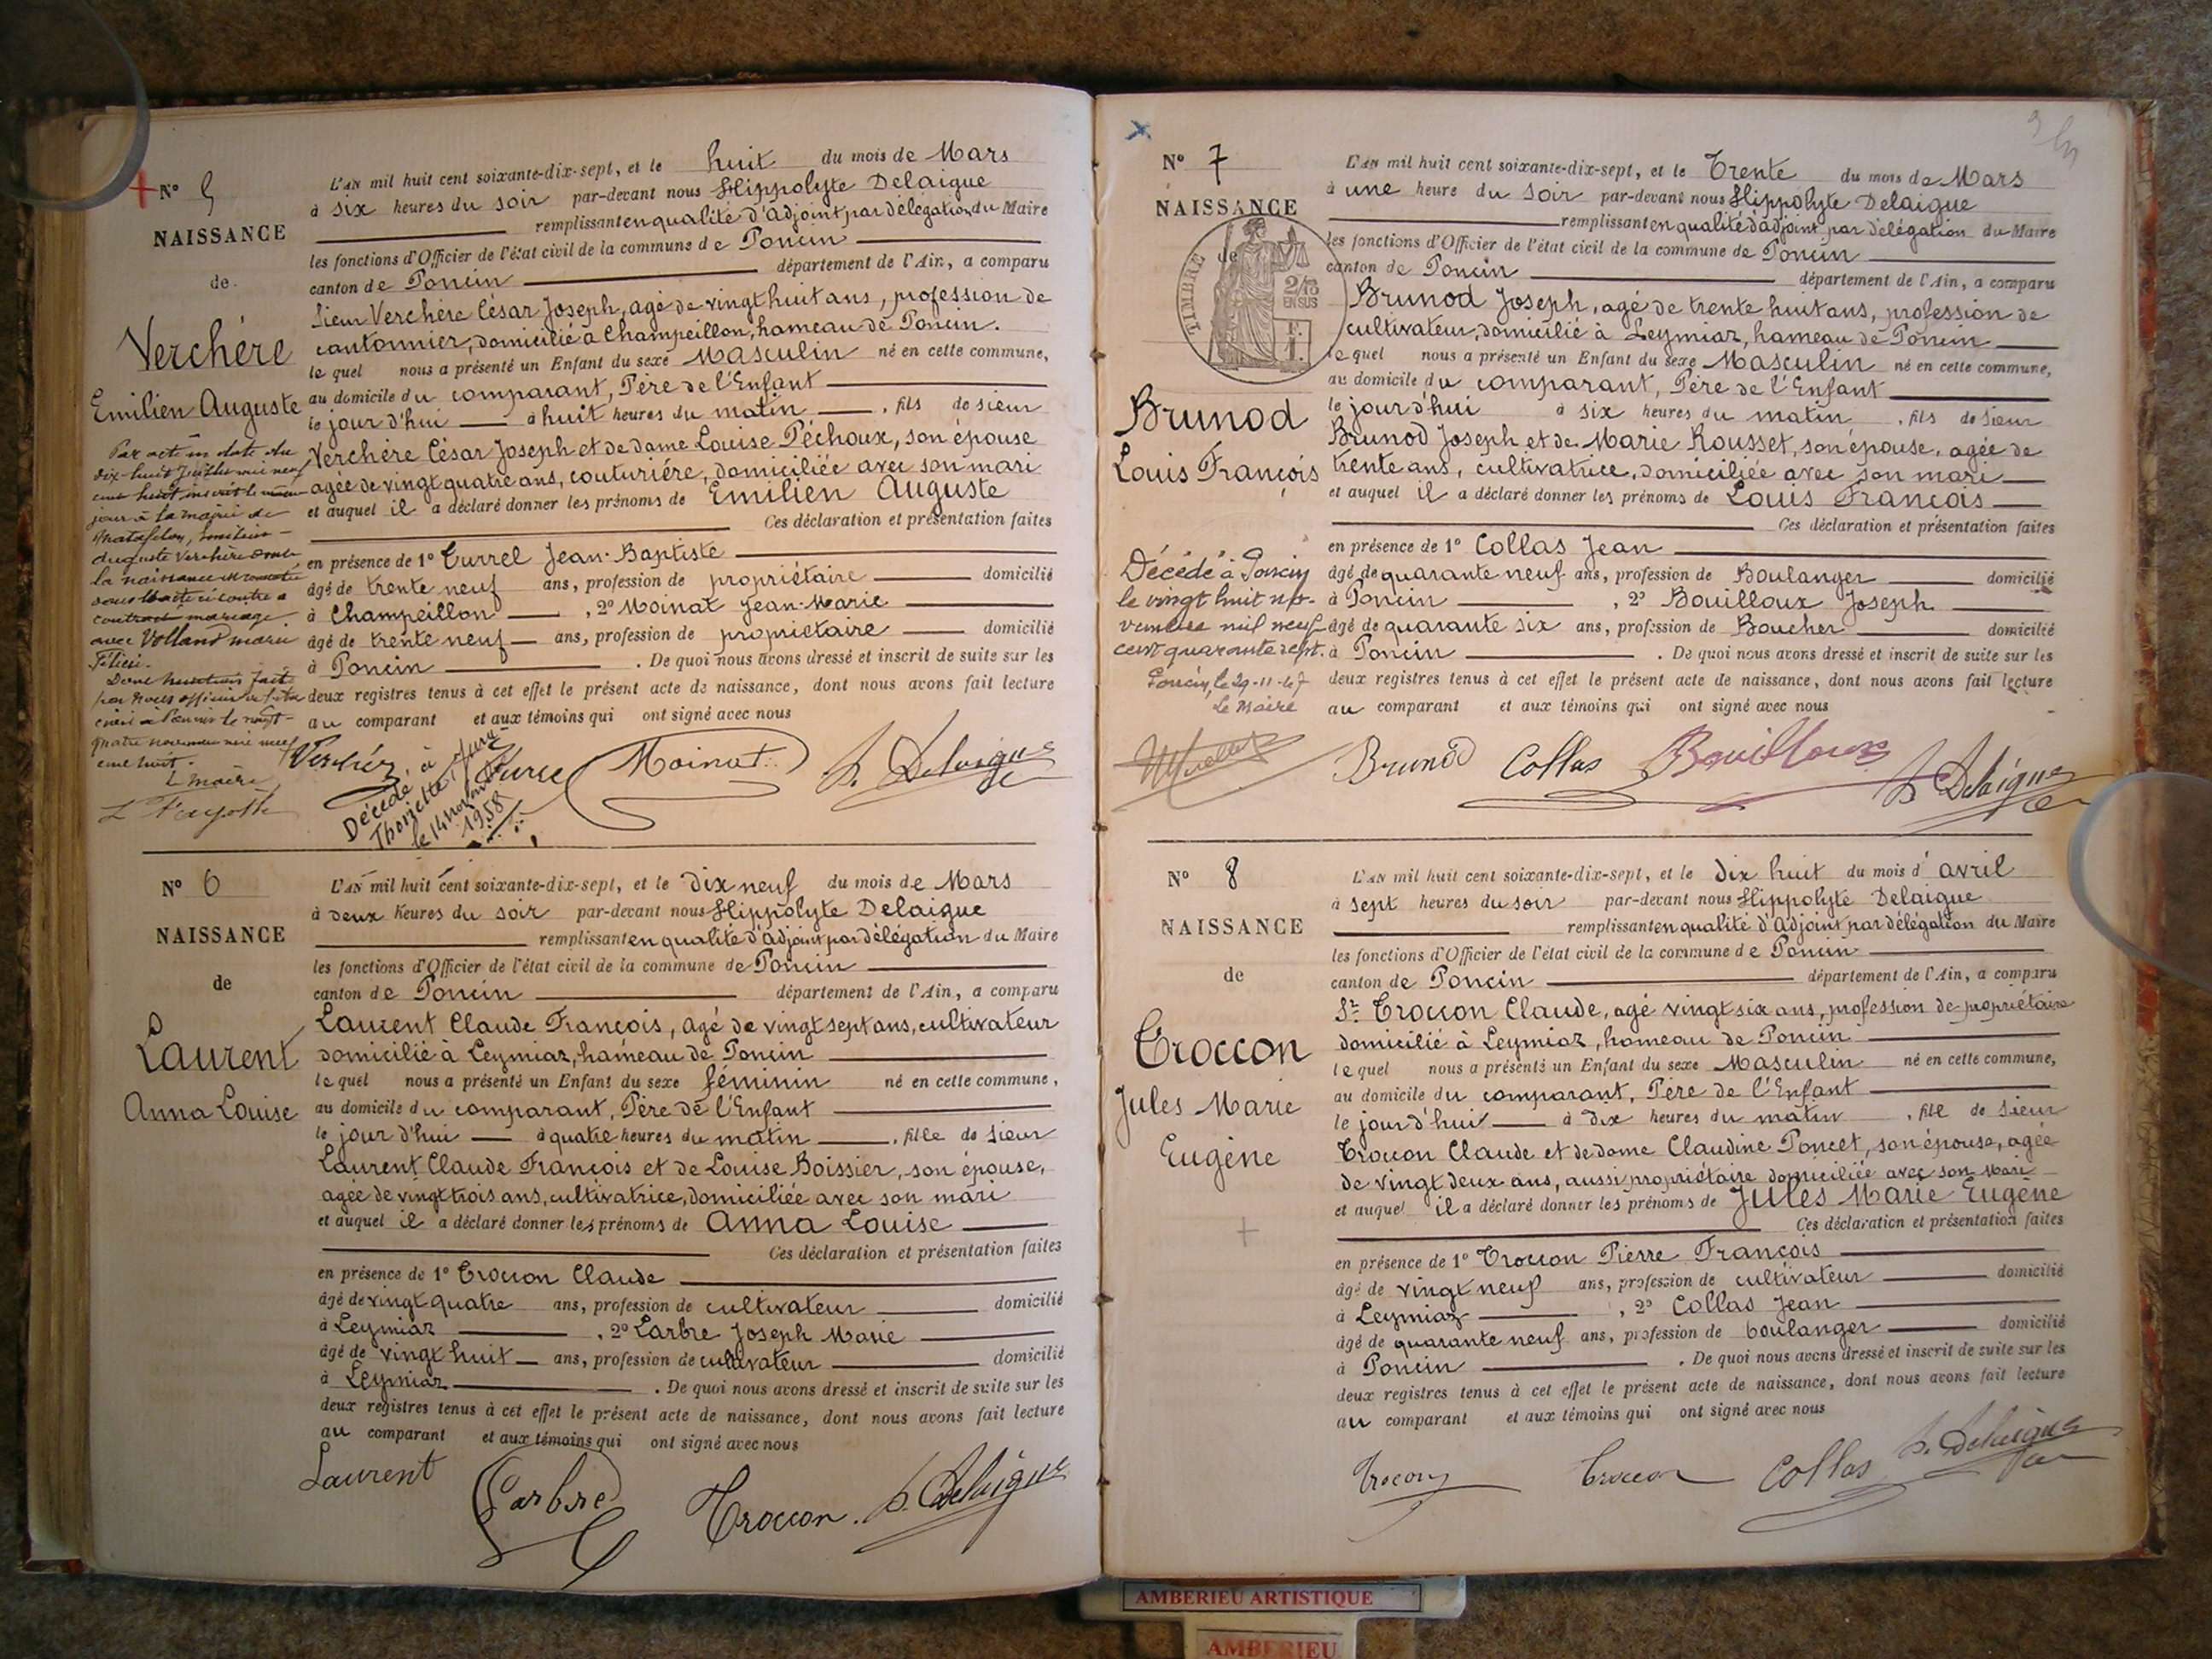 N° 5
NAISSANCE
de
Verchère
Emilien Auguste
Par acte en date du
dix-huit Juillet mil neuf
cent huit inscrit le même
jour à la mairie de
Matafelon, Emilien
Auguste Verchère dont
la naissance est constatée
sous l'acte ci contre a
contracté mariage
avec Volland Marie
Félicie.
quatre novembre mil neuf
cent huit.
Le maire
L'AN mil huit cent soixante-dix-sept, et le huit du mois de Mars
à six heures du soir par-devant nous Hippolyte Delaigue
remplissant en qualité d'Adjoint par délégation du Maire
les fonctions d'Officier de l'état civil de la commune de Poncin
canton de Poncin département de l'Ain, a comparu
Sieur Verchère César Joseph, agé de vingt huit ans, profession de
cantonnier, domicilié à Champeillon, hameau de Poncin.
lequel nous a présenté un Enfant du sexe Masculin né en cette commune,
au domicile du comparant, Père de l'Enfant
le jour d'hui à huit heures du matin, fils de sieur
Verchère César Joseph et de dame Louise Péchoux, son épouse
agée de vingt quatre ans, couturière, domiciliée avec son mari
et auquel il a déclaré donner les prénoms de Emilien Auguste
Ces déclaration et présentation faites
en présence de 1° Turrel Jean-Baptiste
âgé de trente neuf ans, profession de propriétaire domicilié
à Champeillon, 2° Moinat Jean-Marie
âgé de trente neuf ans, profession de propriétaire domicilié
à Poncin. De quoi nous avons dressé et inscrit de suite sur les
deux registres tenus à cet effet le présent acte de naissance, dont nous avons fait lecture
au comparant et aux témoins qui ont signé avec nous
Verchère Moinat H. Delaigue
Décédé à
Thoirette, Jura
le 14 novembre
1958
N° 6
NAISSANCE
de
Laurent
Anna Louise
L'AN mil huit cent soixante-dix-sept, et le dix neuf du mois de Mars
à deux heures du soir par-devant nous Hippolyte Delaigue
remplissant en qualité d'Adjoint par délégation du Maire
les fonctions d'Officier de l'état civil de la commune de Poncin
canton de Poncin département de l'Ain, a comparu
Laurent Claude François, agé de vingt sept ans, cultivateur
domicilié à Leymiaz, hameau de Poncin
lequel nous a présenté un Enfant du sexe féminin né en cette commune,
au domicile du comparant, Père de l'Enfant
le jour d'hui à quatre heures du matin, fille de sieur
Laurent Claude François et de Louise Boissier, son épouse,
agée de vingt trois ans, cultivatrice, domiciliée avec son mari
et auquel il a déclaré donner les prénoms de Anna Louise
Ces déclaration et présentation faites
en présence de 1° Troccon Claude
âgé de vingt quatre ans, profession de cultivateur domicilié
à Leymiaz, 2° Larbre Joseph Marie
âgé de vingt huit ans, profession de cultivateur domicilié
à Leymiaz. De quoi nous avons dressé et inscrit de suite sur les
deux registres tenus à cet effet le présent acte de naissance, dont nous avons fait lecture
au comparant et aux témoins qui ont signé avec nous
Laurent Larbre Troccon. H. Delaigue
N° 7
NAISSANCE
de
TIMBRE
2/10
EN SUS
Brunod
Louis François
Décédé à Poncin
le vingt huit no-
vembre mil neuf
cent quarante sept.
Poncin, le 29-11-47
Le Maire
L'AN mil huit cent soixante-dix-sept, et le Trente du mois de Mars
à une heure du soir par-devant nous Hippolyte Delaigue
remplissant en qualité d'adjoint par délégation du Maire
les fonctions d'Officier de l'état civil de la commune de Poncin
canton de Poncin département de l'Ain, a comparu
Brunod Joseph, agé de trente huit ans, profession de
cultivateur, domicilié à Leymiaz, hameau de Poncin
lequel nous a présenté un Enfant du sexe Masculin né en cette commune,
au domicile du comparant, Père de l'Enfant
le jour d'hui à six heures du matin, fils de sieur
Brunod Joseph et de Marie Rousset, son épouse, agée de
trente ans, cultivatrice, domiciliée avec son mari
et auquel il a déclaré donner les prénoms de Louis François
Ces déclaration et présentation faites
en présence de 1° Collas Jean
âgé de quarante neuf ans, profession de Boulanger domicilié
à Poncin, 2° Bouilloux Joseph
âgé de quarante six ans, profession de Boucher domicilié
à Poncin. De quoi nous avons dressé et inscrit de suite sur les
deux registres tenus à cet effet le présent acte de naissance, dont nous avons fait lecture
au comparant et aux témoins qui ont signé avec nous
Brunod Collas Bouilloux H. Delaigue
N° 8
NAISSANCE
de
Troccon
Jules Marie
Eugène
L'AN mil huit cent soixante-dix-sept, et le dix huit du mois d'avril
à sept heures du soir par-devant nous Hippolyte Delaigue
remplissant en qualité d'Adjoint par délégation du Maire
les fonctions d'Officier de l'état civil de la commune de Poncin
canton de Poncin département de l'Ain, a comparu
Sr Troccon Claude, agé vingt six ans, profession de propriétaire
domicilié à Leymiaz, hameau de Poncin
lequel nous a présenté un Enfant du sexe Masculin né en cette commune,
au domicile du comparant, Père de l'Enfant
le jour d'hui à dix heures du matin, fils de sieur
Troccon Claude et de dame Claudine Poncet, son épouse, agée
de vingt deux ans, aussi propriétaire domiciliée avec son mari
et auquel il a déclaré donner les prénoms de Jules Marie Eugène
Ces déclaration et présentation faites
en présence de 1° Troccon Pierre François
âgé de vingt neuf ans, profession de cultivateur domicilié
à Leymiaz, 2° Collas Jean
âgé de quarante neuf ans, profession de boulanger domicilié
à Poncin. De quoi nous avons dressé et inscrit de suite sur les
deux registres tenus à cet effet le présent acte de naissance, dont nous avons fait lecture
au comparant et aux témoins qui ont signé avec nous
Troccon Troccon Collas H. Delaigue
AMBERIEU ARTISTIQUE
AMBERIEU